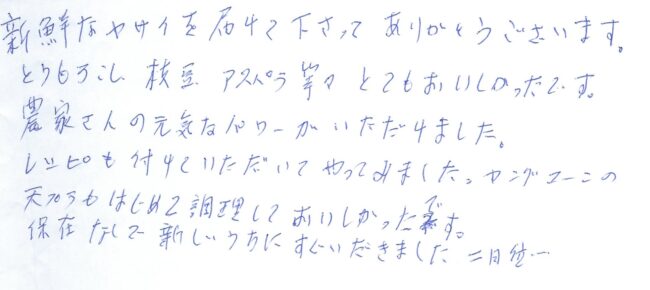 新鮮なヤサイを届けて下さって ありがとうございます。
とうもろこし 枝豆 アスパラ 等々 とてもおいしかったです。
農家さんの元気なパワーがいただけました。
レシピも付けていただいて やってみました。ヤングコーンの
天プラもはじめて調理して おいしかったです。
保在なしで 新しいうちに すぐいだきました 二日位…